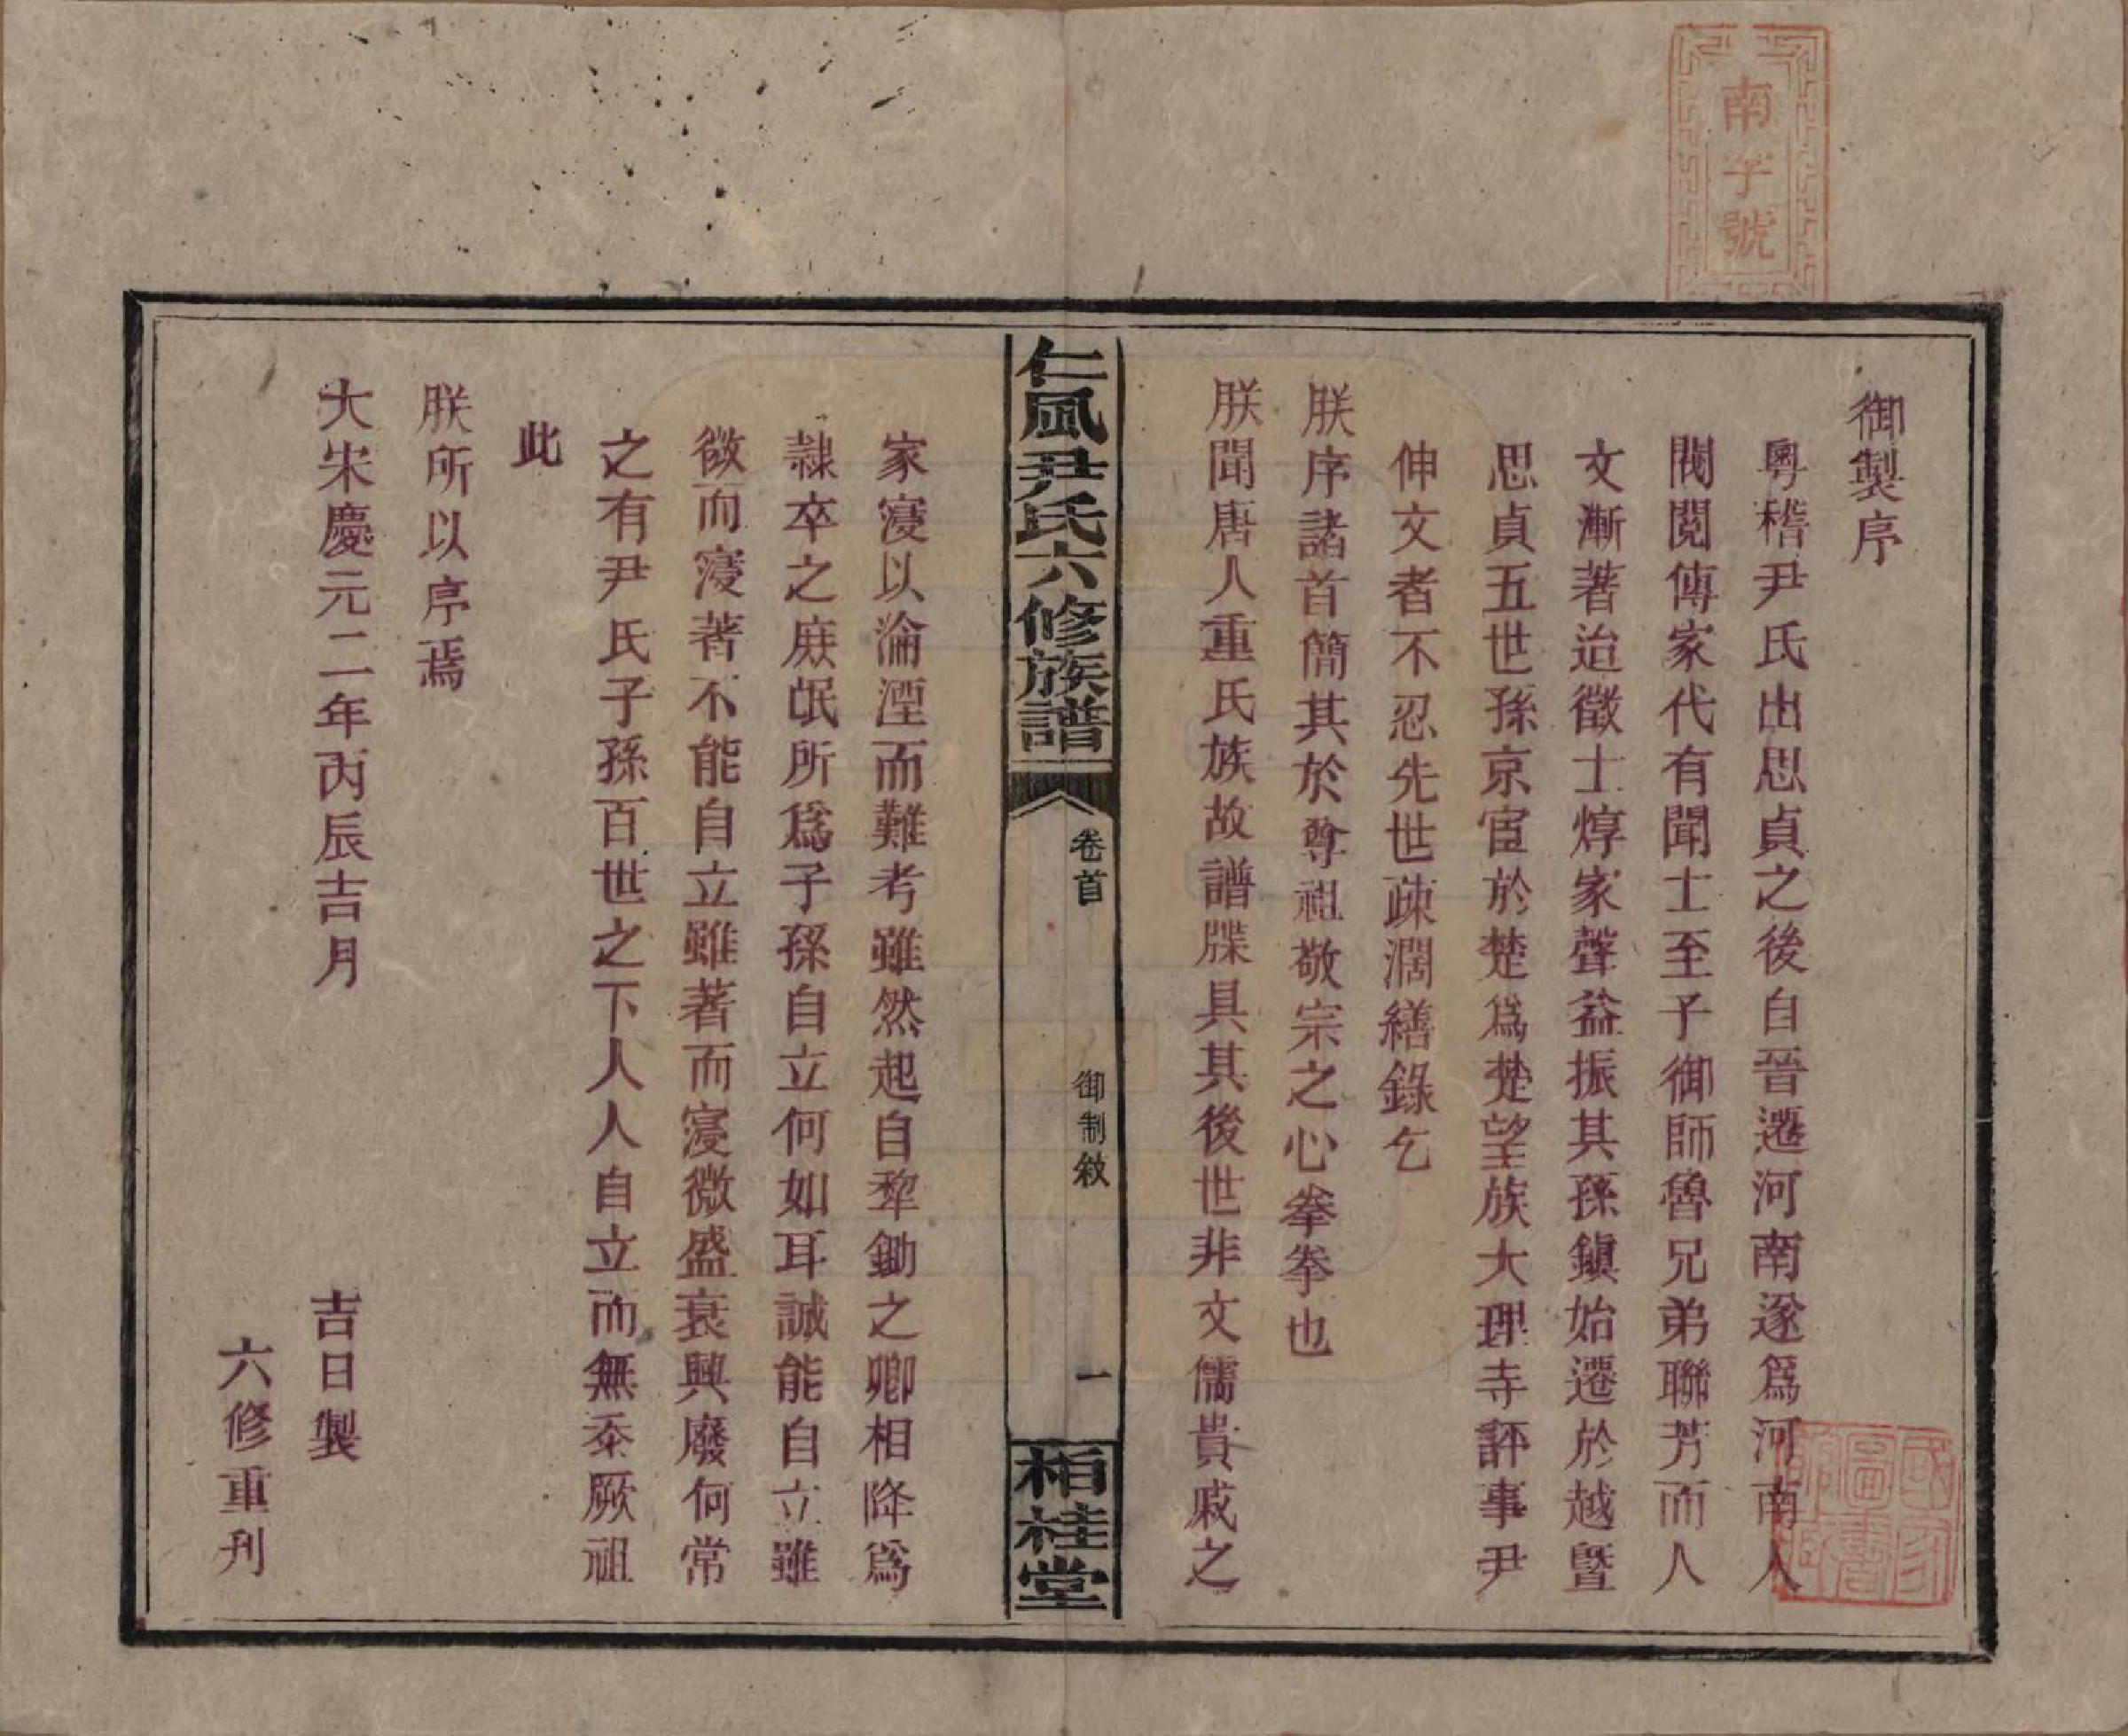 南字號
御製序
粵稽尹氏出思貞之後自晉遷河南遂爲河南人
閥閱傳家代有聞士至子御師魯兄弟聯芳而人
文漸著迨徵士焞家聲益振其孫鎮始遷於越暨
思貞五世孫京宦於楚爲楚望族大理寺評事尹
伸文者不忍先世疎濶繕錄乞
朕序諸首簡其於尊祖敬宗之心拳拳也
朕聞唐人重氏族故譜牒具其後世非文儒貴戚之
仁風尹氏六修族譜
卷首
御制敘
一
栢桂堂
家寖以淪湮而難考雖然起自犂鋤之卿相降爲
隸卒之庶氓所爲子孫自立何如耳誠能自立雖
微而寖著不能自立雖著而寖微盛衰興廢何常
之有尹氏子孫百世之下人人自立而無忝厥祖
此
朕所以序焉
大宋慶元二年丙辰吉月
吉日製
六修重刊